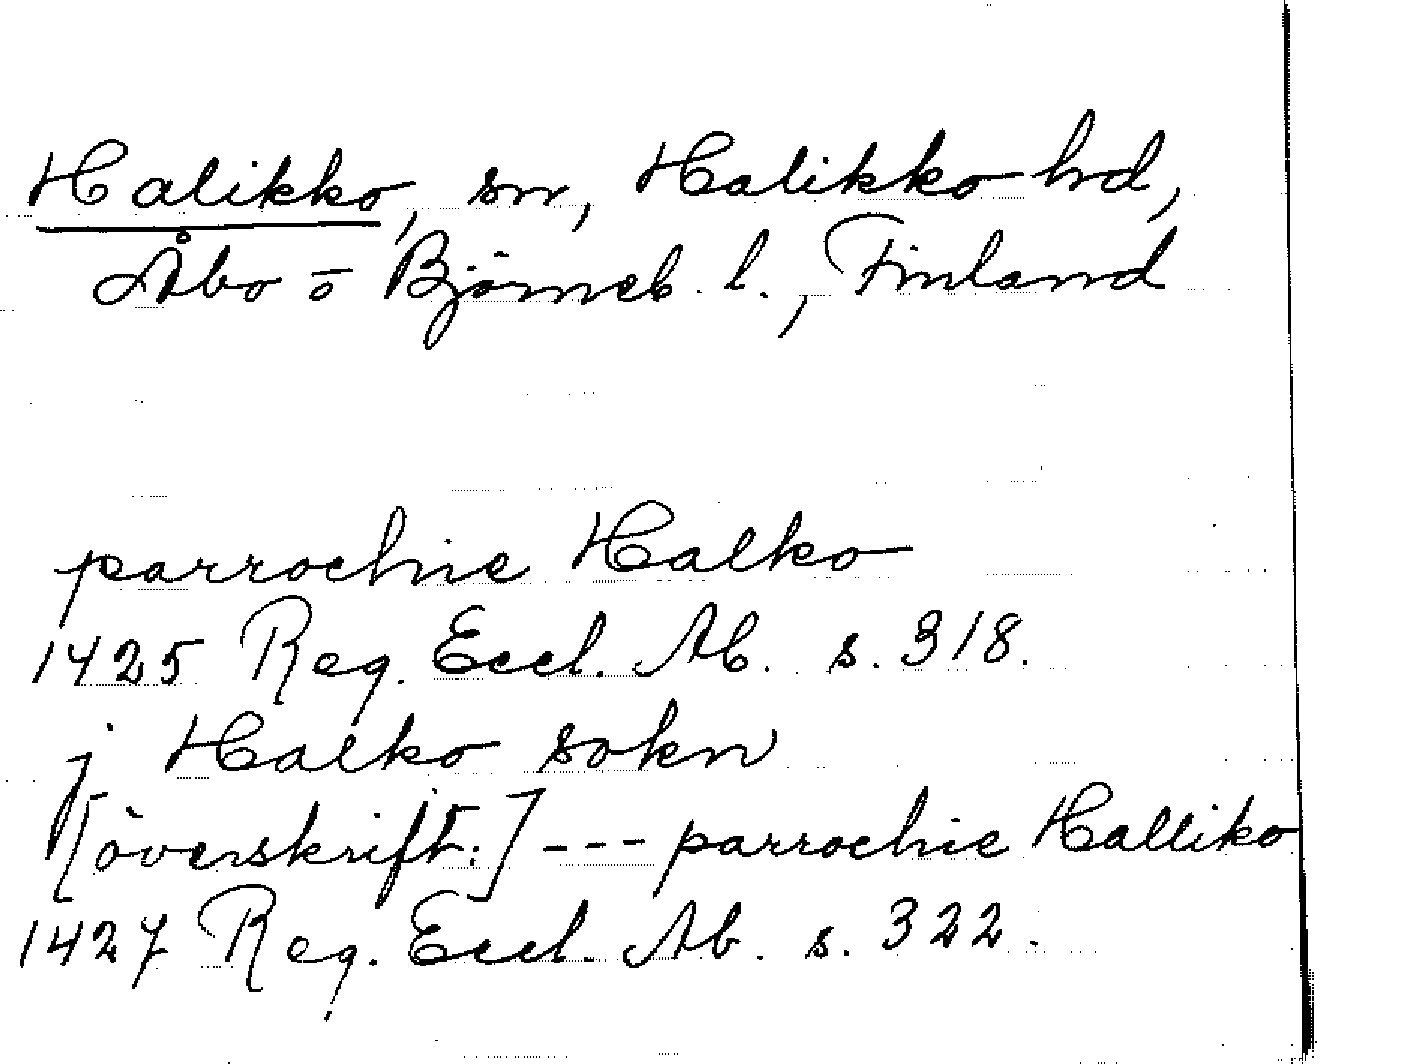 Halikko, sn, Halikko hd,
Åbo o Björneb. l., Finland
parrochie Halko
1425 Reg. Eccl. Ab. s. 318.
j Halko sokn
[överskrift:] --- parrochie Halliko
1427 Reg. Eccl. Ab. s. 322.